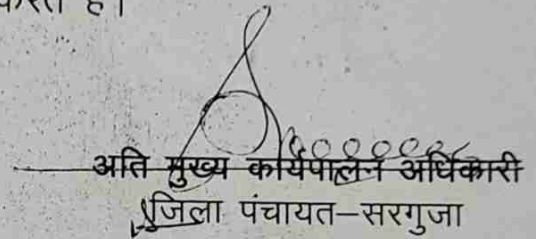 करते हैं।
अति मुख्य कार्यपालन अधिकारी
जिला पंचायत–सरगुजा